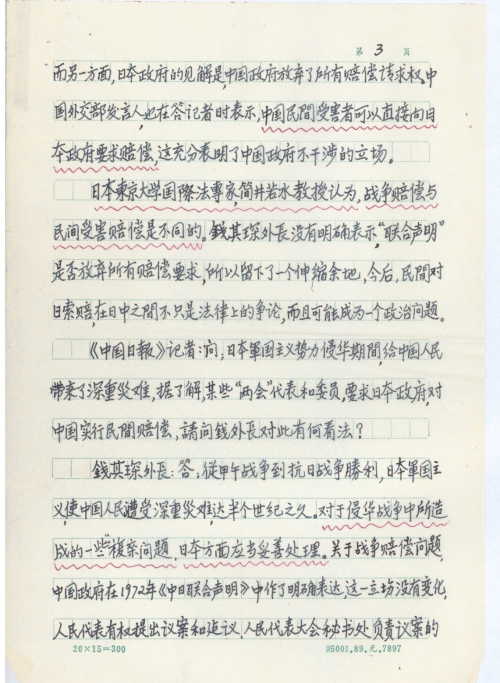 第 3 页
而另一方面,日本政府的见解是,中国政府放弃了所有赔偿请求权。中
国外交部发言人也在答记者时表示,中国民間受害者可以直接向日
本政府要求赔偿,这充分表明了中国政府不干涉的立场。
日本東京大学国際法專家,简井若水教授认为,战争赔偿与
民间受害赔偿是不同的。錢其琛外長没有明确表示,“联合声明”
是否放弃所有赔偿要求,所以留下了一个伸縮余地,今后,民間对
日索赔,在日中之間不只是法律上的争论,而且可能成为一个政治问题。
《中国日報》记者:问:日本軍国主义势力侵华期間,给中国人民
带来了深重災难,据了解,某些“两会”代表和委员,要求日本政府,对
中国实行民間赔偿,請问錢外長对此有何看法?
錢其琛外長:答:從甲午战争到抗日战争勝利,日本軍国主
义,使中国人民遭受深重災难,达半个世纪之久。对于侵华战争中所造
成的一些“複杂问題,日本方面应当妥善处理。关于战争赔偿问题,
中国政府在1972年《中日联合声明》中作了明确表达,这一立场没有变化,
人民代表有权提出议案和建议,人民代表大会秘书处,负責议案的
20×15=300
95001.89.元.7897